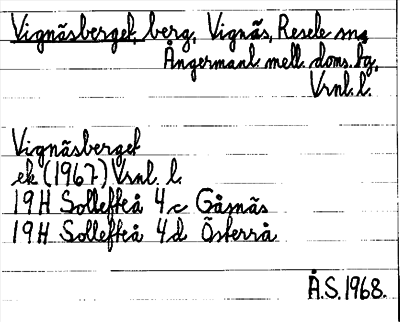 Vignäsberget, berg, Vignäs, Resele sn,
Ångermanl. mell. doms.hg,
Vrnl. l.
Vignäsberget
ek (1967) Vrnl. l.
19H Sollefteå 4c Gåsnäs
19H Sollefteå 4d Österrå
Å.S. 1968.